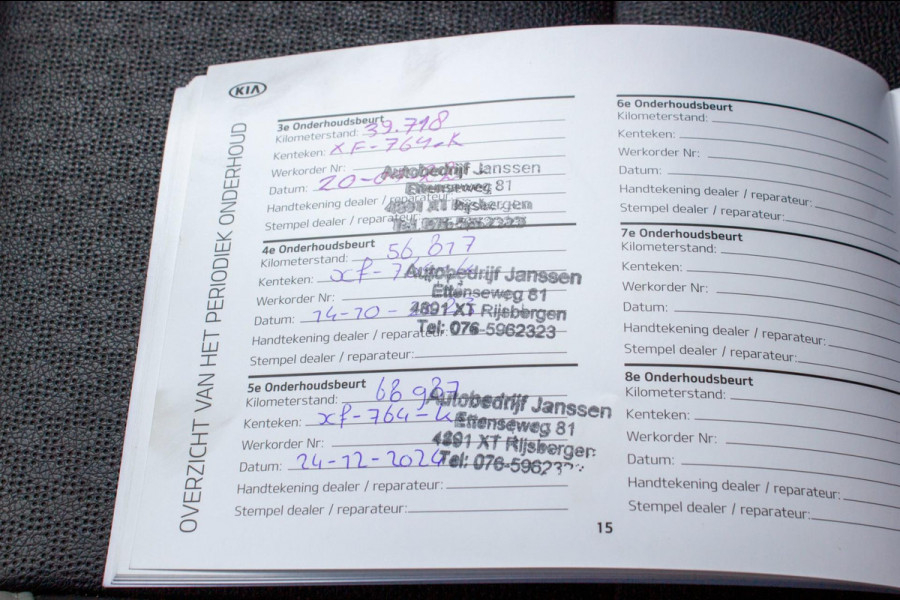 KIA
OVERZICHT VAN HET PERIODIEK ONDERHOUD
3e Onderhoudsbeurt
Kilometerstand: 39.718
Kenteken: XF-764-K
Werkorder Nr:
Datum: 20-
Handtekening dealer / reparateur:
Stempel dealer / reparateur:
Autobedrijf Janssen
Ettenseweg 81
4891 XT Rijsbergen
Tel: 076-5962323
4e Onderhoudsbeurt
Kilometerstand: 56,817
Kenteken: xf-76
Werkorder Nr:
Datum: 14-10-
Handtekening dealer / reparateur:
Stempel dealer / reparateur:
Autobedrijf Janssen
Ettenseweg 81
4891 XT Rijsbergen
Tel: 076-5962323
5e Onderhoudsbeurt
Kilometerstand: 68987
Kenteken: xf-764-K
Werkorder Nr:
Datum: 24-12-2024
Handtekening dealer / reparateur:
Stempel dealer / reparateur:
Autobedrijf Janssen
Ettenseweg 81
4891 XT Rijsbergen
Tel: 076-59623
6e Onderhoudsbeurt
Kilometerstand:
Kenteken:
Werkorder Nr:
Datum:
Handtekening dealer / reparateur:
Stempel dealer / reparateur:
7e Onderhoudsbeurt
Kilometerstand:
Kenteken:
Werkorder Nr:
Datum:
Handtekening dealer / reparateur:
Stempel dealer / reparateur:
8e Onderhoudsbeurt
Kilometerstand:
Kenteken:
Werkorder Nr:
Datum:
Handtekening dealer / reparateur:
Stempel dealer / reparateur:
15